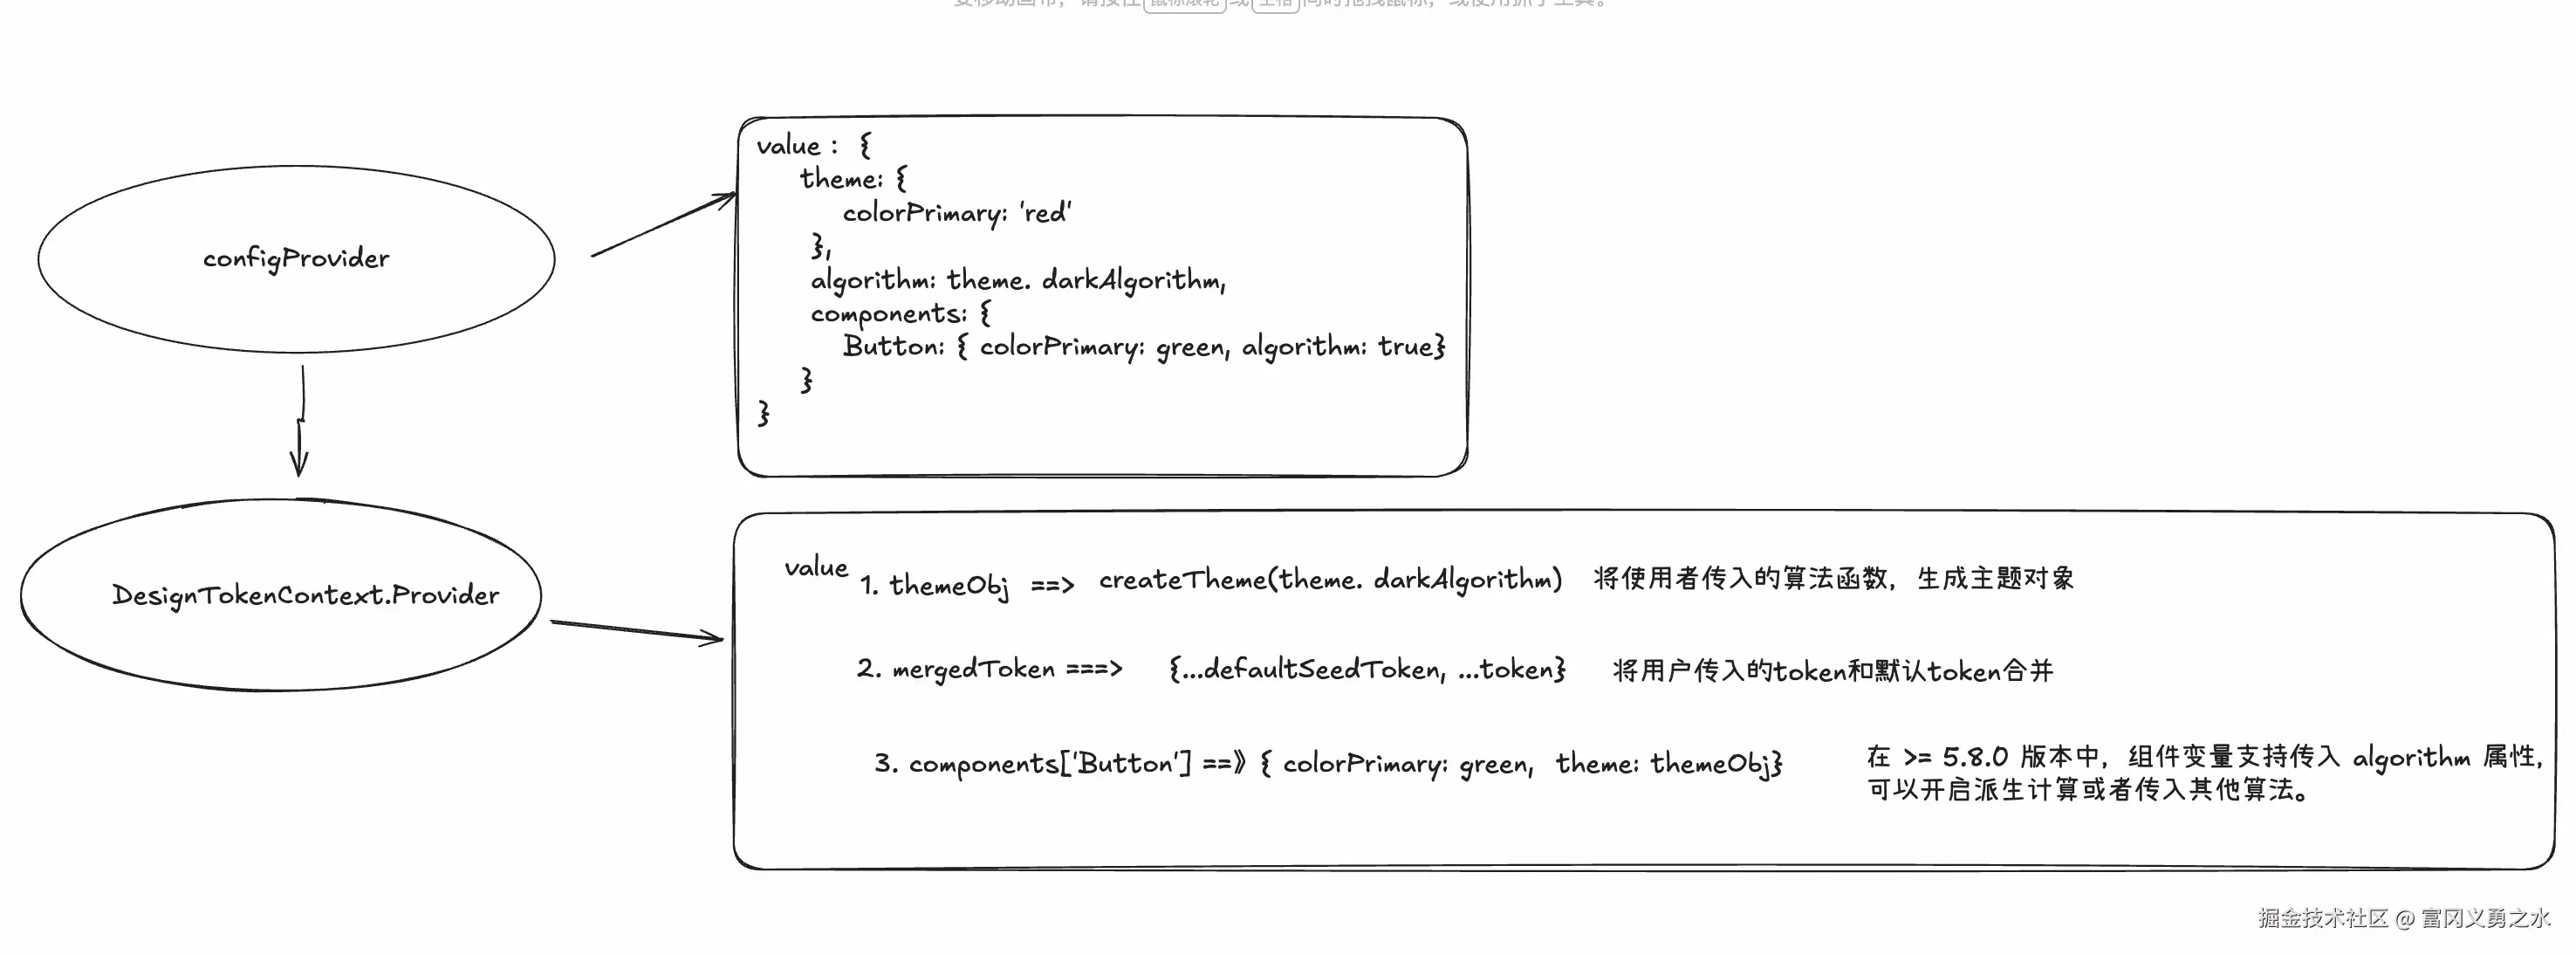 configProvider
value : {
theme: {
colorPrimary: 'red'
},
algorithm: theme. darkAlgorithm,
components: {
Button: { colorPrimary: green, algorithm: true}
}
}
DesignTokenContext.Provider
value
1. themeObj ==> createTheme(theme. darkAlgorithm) 将使用者传入的算法函数，生成主题对象
2. mergedToken ===> {...defaultSeedToken, ...token} 将用户传入的token和默认token合并
3. components['Button'] ==》{ colorPrimary: green, theme: themeObj}
在 >= 5.8.0 版本中，组件变量支持传入 algorithm 属性，
可以开启派生计算或者传入其他算法。
掘金技术社区 @ 富冈义勇之水